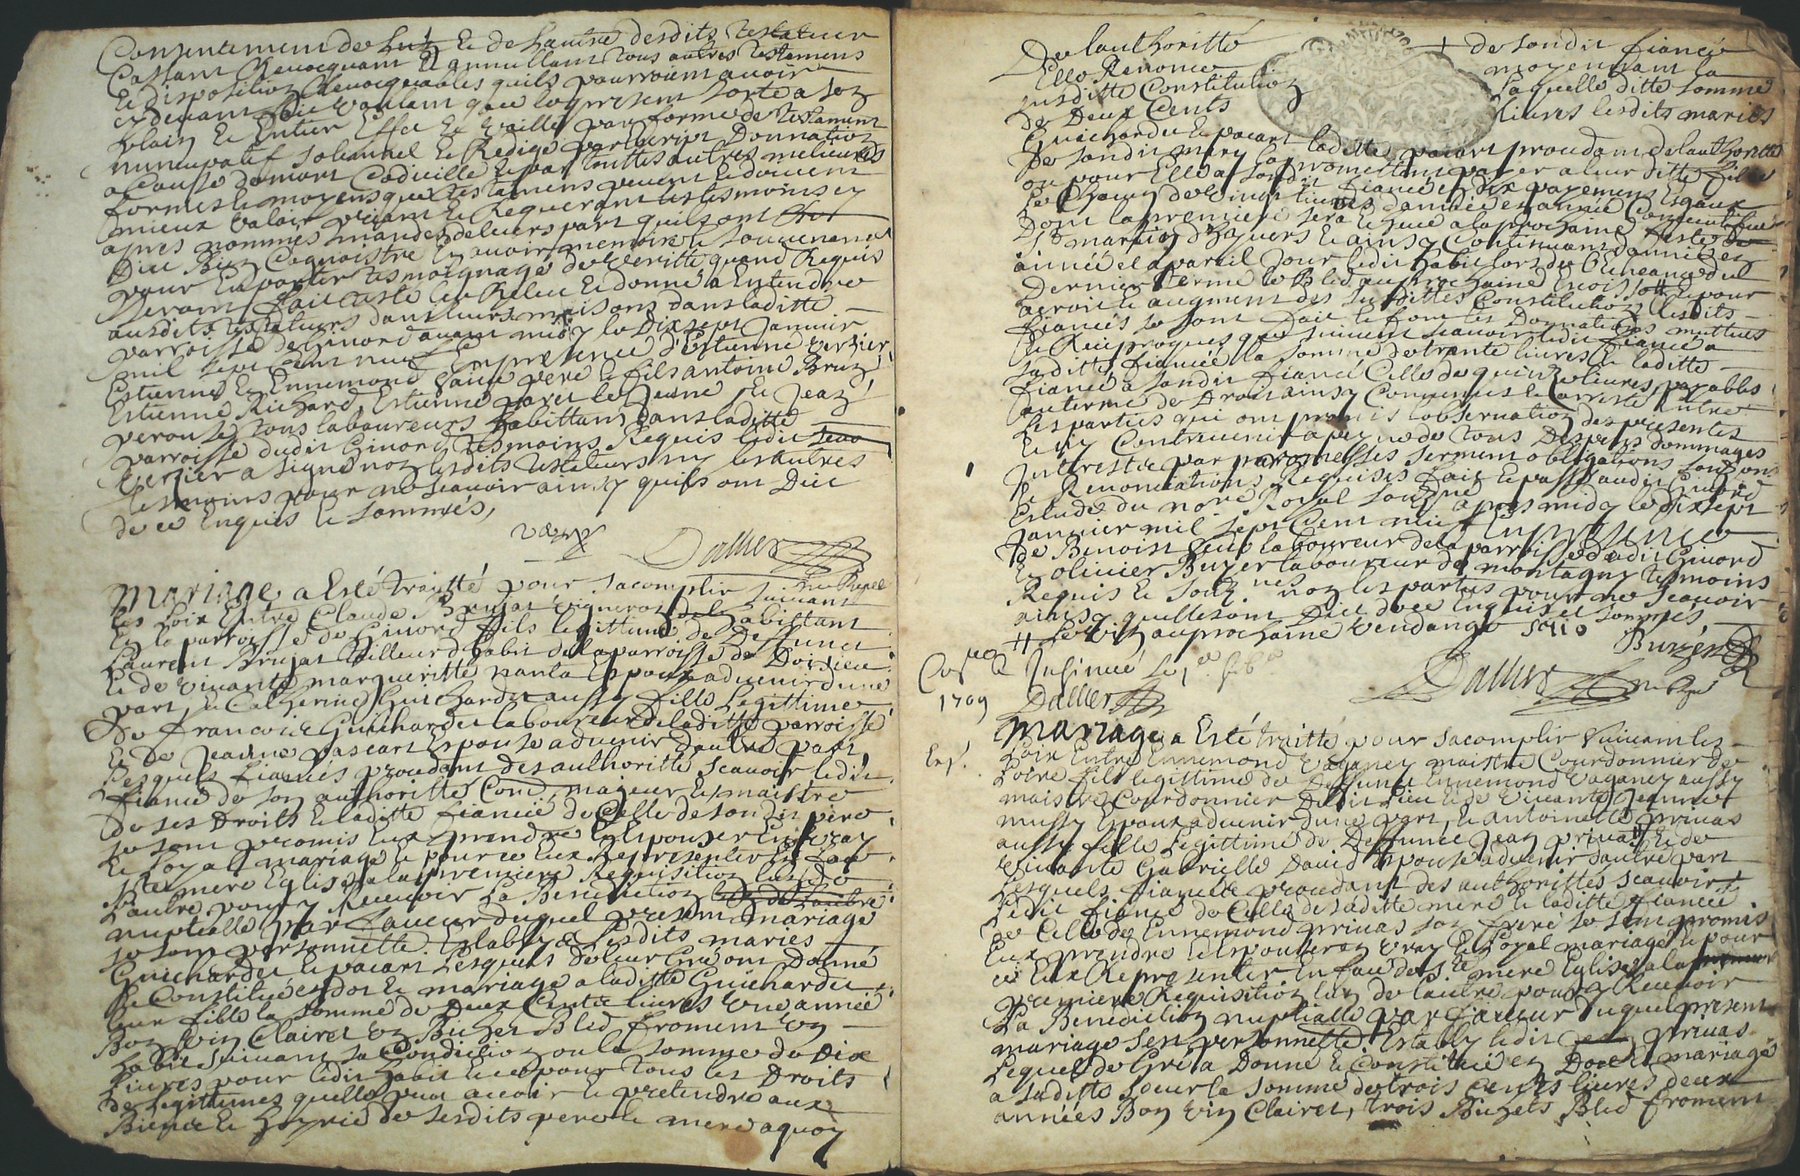 Consentement de lun & de lautre desdits testateur
Cassant Revocquant & annullant tous autres testamens
& disposition Revocquables quils pourroient avoir
cy devant fait voulant que le present sorte a son
plain & Entier Effet & vaille par forme de testament
nuncupatif solemnel & Redigé par Escript Donnation
a Cause de mort Codicille & par touttes autres melieures
formes & moyens que testamens peuvent & doivent
mieux valoir priant & Requerant les tesmoins cy
apres nommés mandes de leurs part quils ont
Dit Bien Cognoistre En avoir memoire & souvenance
pour En porter tesmoignage de veritté quand Requis
seront fait
ausdits testateurs dans leurs maisons dans laditte
parroisse de Ginord avant midy le Dix sept Janvier
mil sept Cent neuf En presence d'Estienne verzier
Estienne & Ennemond pere & fils antoine Brun
Estienne Richard Estienne le Jeune & Jean
tous laboureurs habittant dans laditte
parroisse dudit Ginord tesmoins Requis ledit
verzier a signé non lesdits testateurs ny les autres
tesmoins pour ne scavoir ainsy quils ont Dit
de ce Enquis & sommés,
Dallier
Mariage a Esté traitté pour sacomplir suivant
les loix Entre Claude Brujas vigneron habittant
En la parroisse de Ginord fils legittime de Deffunct
Laurent Brujas tailleur d'habit de la parroisse de
& de vivante margueritte nanta Espoux advenir d'une
part, & Catherine Guichardet aussy fille legittime
de francois Guichardet laboureur de laditte parroisse
& de Jeanne pacart Espouse advenir dautre part
Lesquels fiancés procedant des authorittés scavoir ledit
fiancé de son authoritté Comme majeur & maistre
de ses Droits & laditte fiancée de Celle de sondit pere
se sont promis Eux prendre & Espouser En vray
& loyal mariage & pour ce Eux Representer En face
ste mere Eglise a la premiere Requisition lun de
lautre pour y Recevoir la Benediction
nuptialle par faveur duquel present mariage
se sont personnellement Establys lesdits mariés
Guichardet & pacart Lesquels de leur Gré ont Donné
& Constitué en dot & mariage a laditte Guichardet
leur fille la somme de Deux Cents livres une année
Bon vin Clairet un Bichet Bled froment un
habit suivant sa Condition ou la somme de Dix
livres pour ledit habit & ce pour tous les Droits
de legittimes quelle peut avoir & pretendre aux
Biens & hoyrie de sesdits pere & mere aquoy
De lauthoritté de sondit fiancé
Elle Renonce moyennant la
susditte Constitution laquelle ditte somme
de Deux Cents livres lesdits mariés
Guichardet & pacart laditte pacart procedant de lauthoritté
de sondit mary promettent payer a leur ditte fille
ou pour Elle a sondit fiancé En dix payemens Esgaux
de Chacun de vingt livres d'année en année
Dont la premiere sera & Escherra a la prochaine feste
St martin d'hyvers & ainsy Continuant d'année en
année & a pareil Jour ledit habit lors de l'Echeance du
dernier terme le Bled au prochaine moisson & pour
acroit & augment des susdittes Constitutions lesdits
fiancés se sont fait les Donnations mutues
& Reciproques que suivent scavoir ledit fiancé a
saditte fiancée la somme de trente livres & laditte
fiancée a sondit fiancé Celle de quinze livres payables
au terme de Droit ainsy Convenus & arresté Entre
lesparties qui ont promis lobservation des presentes
& ny Contrevenir a peyne de tous Despens dommages
Interests par promesses serment obligations
& Renonciations Requises fait & passé audit Ginord
Estude du notre Royal soubsigné apres midy le dix sept
Janvier mil sept Cent neuf En presence
de Benoist laboureur de la parroisse dudit Ginord
& olivier Buyer laboureur de montagny tesmoins
Requis & soubsignes non les parties pour ne scavoir
ainsy quelles ont Dit de ce Enquis et sommés
# le vin au prochaine vendange
Buyer
Insinué
1709
Dallier
Dallier
Mariage a Esté traitté pour sacomplir suivant les
loix Entre Ennemond vaganey maistre Courdonnier de
fils legittime de deffunct Ennemond vaganey aussy
maistre Courdonnier dudit lieu & de vivante Jeanne
mussy Espoux advenir d'une part, & antoinette privas
aussy fille legittime de Deffunct Jean privas & de
vivante Gabrielle David Espouse advenir dautre part
Lesquels fiancés procedant des authorittés scavoir
ledit fiancé de Celle de saditte mere & laditte fiancée
de Celle de Ennemond privas son frere se sont promis
Eux prendre & Espouser En vray & loyal mariage & pour
ce Eux Representer En face de ste mere Eglise a la
premiere Requisition lun de lautre pour y Recevoir
la Benediction nuptialle par faveur duquel present
mariage sest personnellement Estably ledit privas
Lequel de Gré a Donné & Constitué en Dot & mariage
a saditte soeur la somme de trois cents livres deux
années Bon vin Clairet, trois Bichets Bled froment